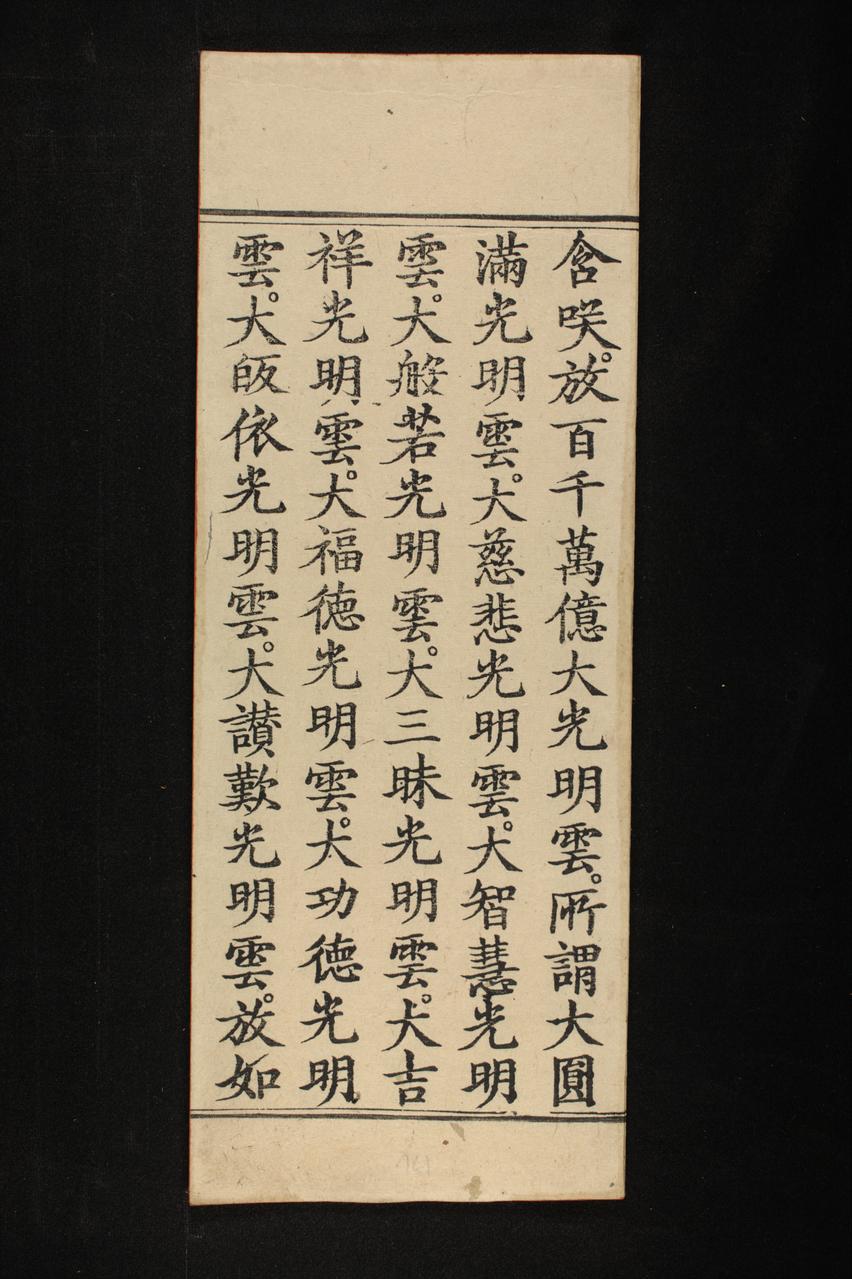 含咲。放百千萬億大光明雲。所謂大圓
滿光明雲。大慈悲光明雲。大智慧光明
雲。大般若光明雲。大三昧光明雲。大吉
祥光明雲。大福德光明雲。大功德光明
雲。大皈依光明雲。大讚歎光明雲。放如